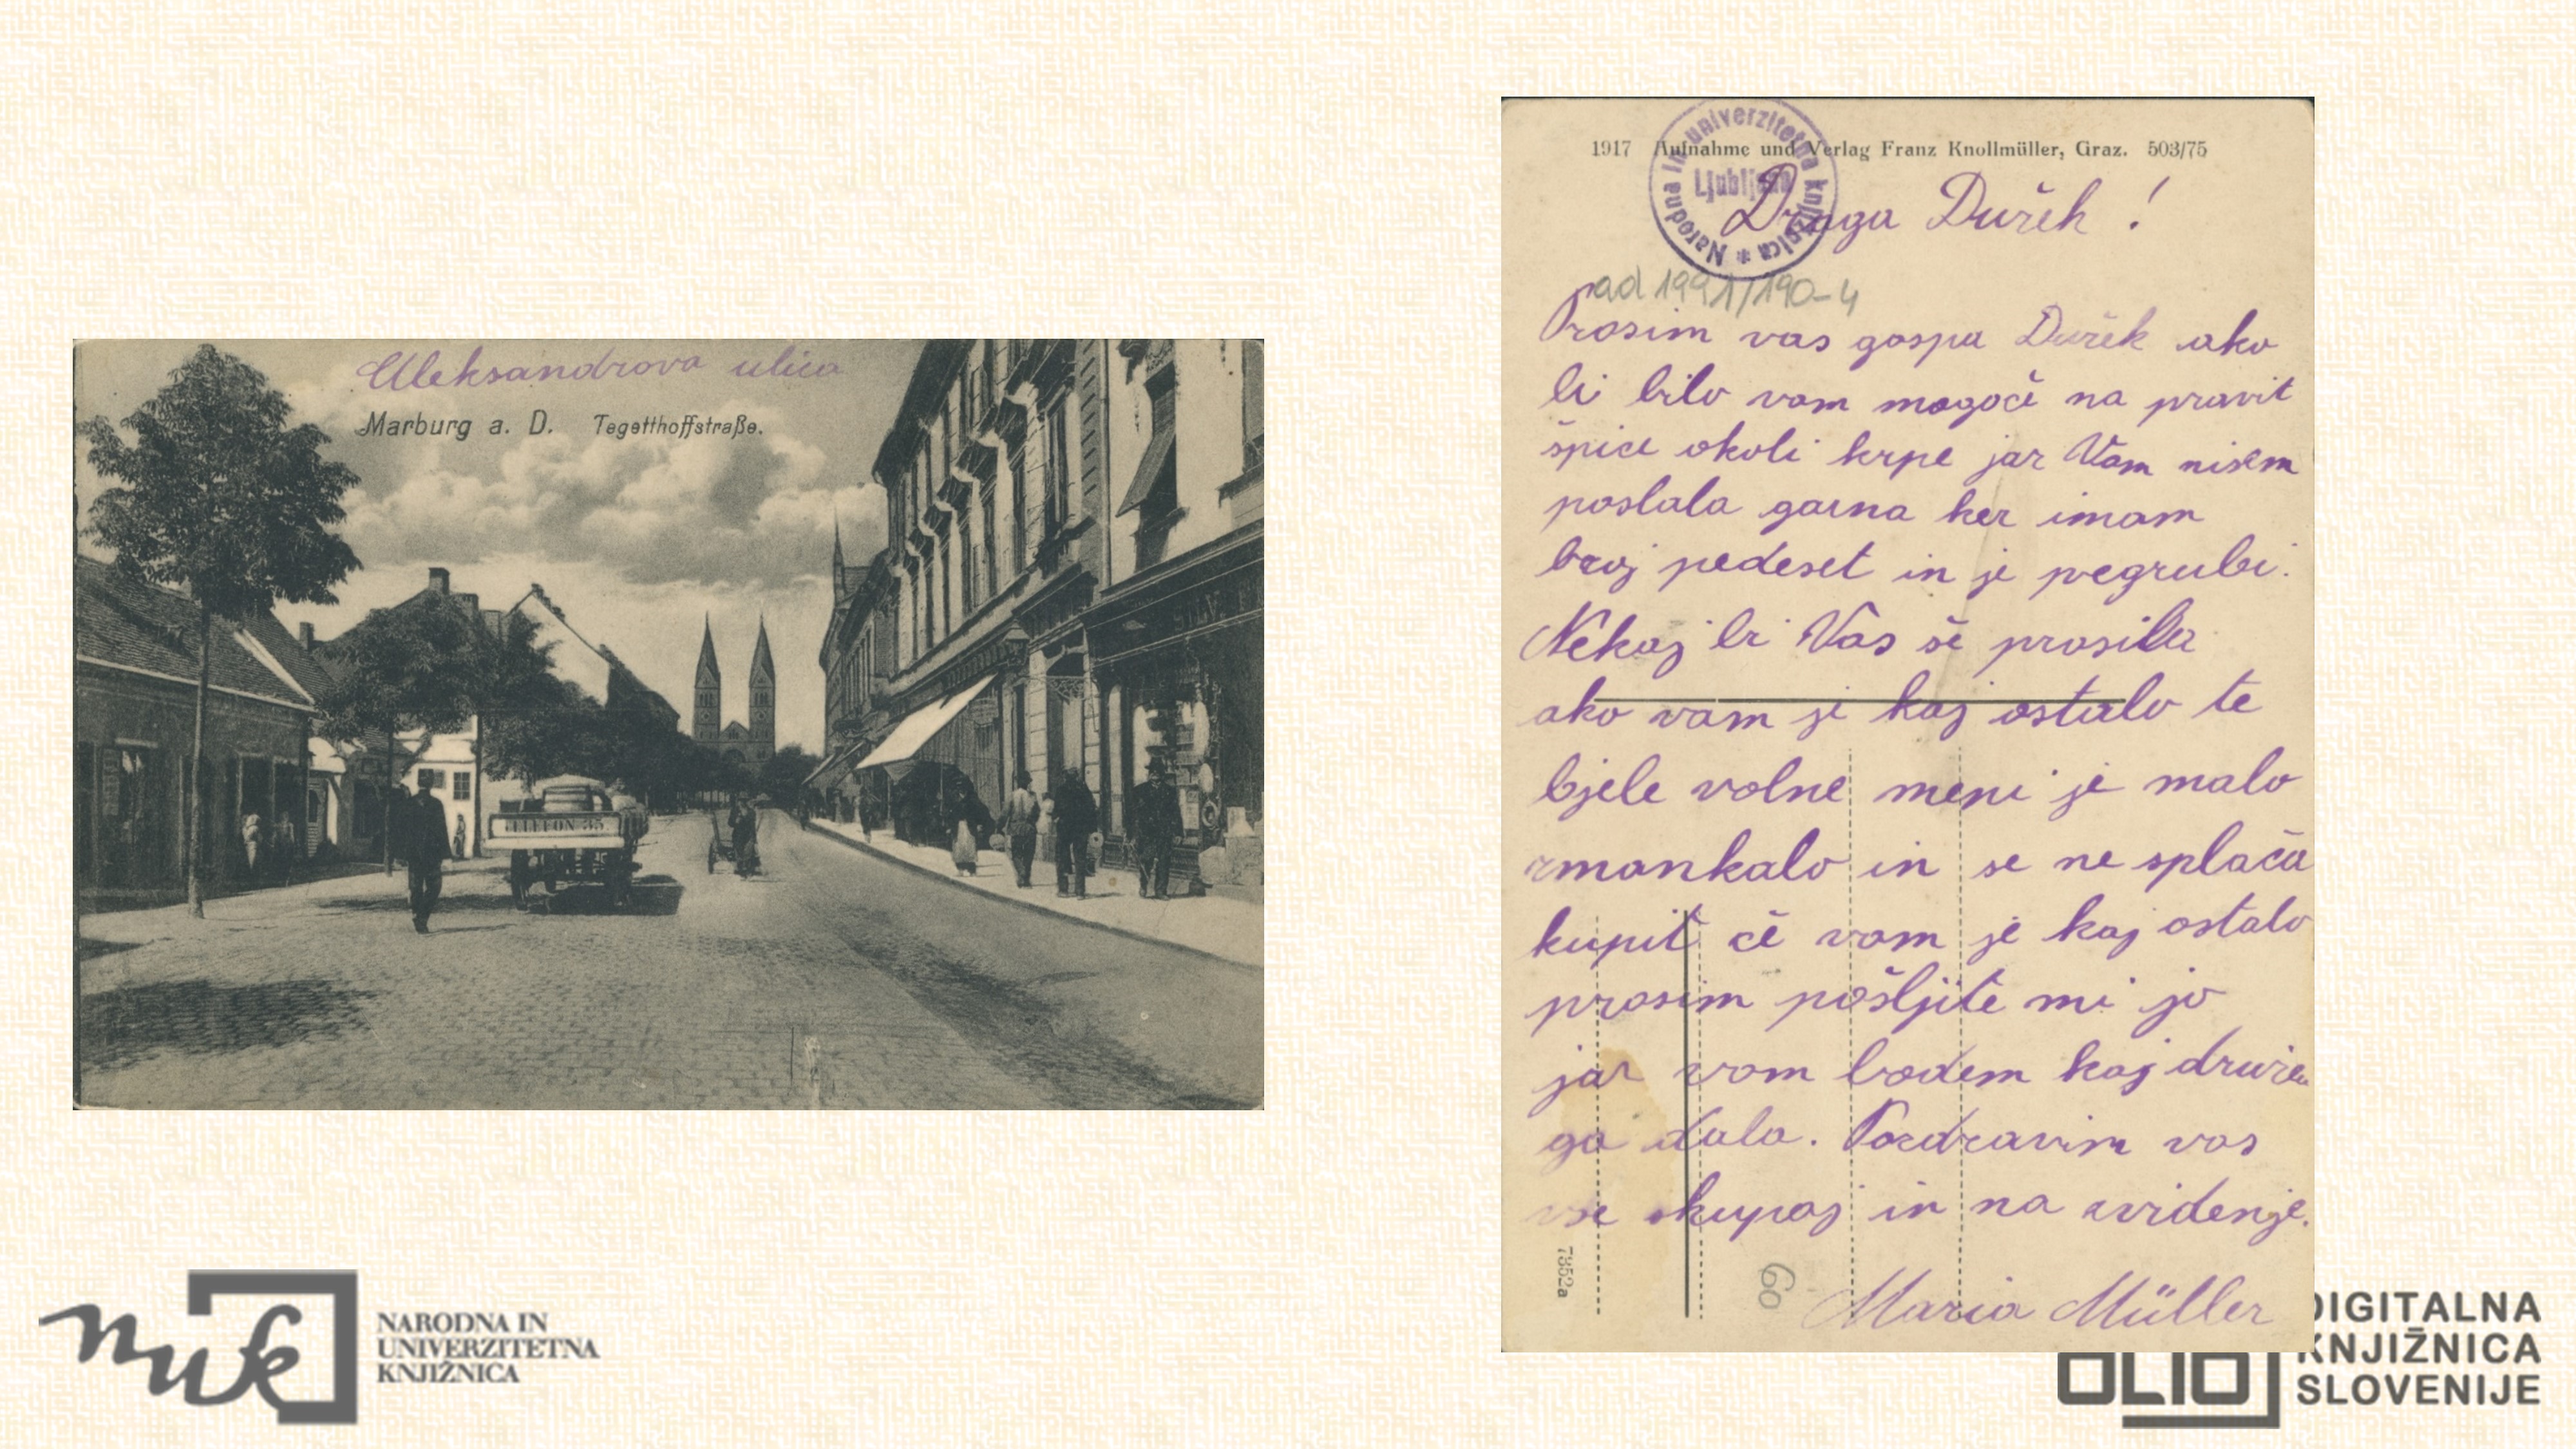 Aleksandrova ulica
Marburg a. D. Tegetthoffstraße.
TELEFON 35
1917 Aufnahme und Verlag Franz Knollmüller, Graz. 503/75
Narodna in univerzitetna knjižnica *
Ljubljana
Draga Durek !
ad 1991/190-4
Prosim vas gospa Durek ako
bi bilo vam mogoče na pravit
špice okoli krpe jaz Vam nisem
poslala garna ker imam
broj pedeset in je pegrubi.
Nekaj bi Vas še prosila
ako vam je kaj ostalo te
bjele volne meni je malo
zmankalo in se ne splača
kupit če vam je kaj ostalo
prosim pošljite mi jo
jaz vam bodem kaj druze
ga dala. Pozdravim vas
vse skupaj in na svidenje.
7352a
60
Maria Müller
nuk
NARODNA IN
UNIVERZITETNA
KNJIŽNICA
DIGITALNA
KNJIŽNICA
SLOVENIJE